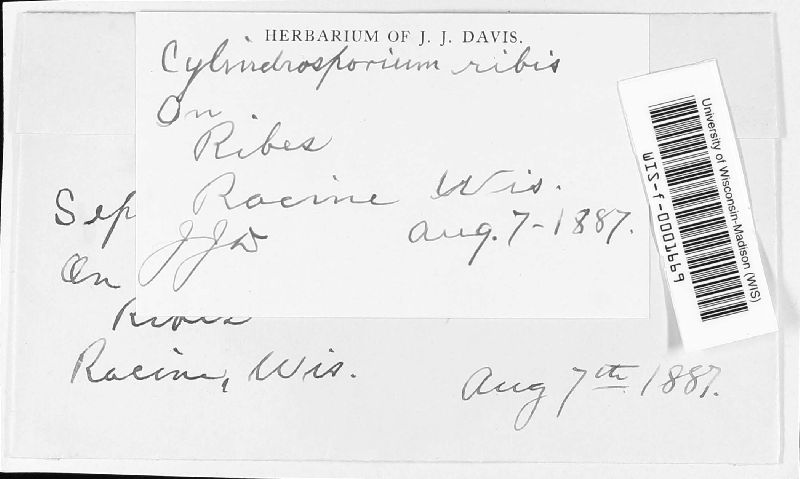 HERBARIUM OF J. J. DAVIS.
Cylindrosporium ribis
On
Ribes
Racine Wis.
JJD Aug. 7-1887.
Sep
On
Racine, Wis.
Aug 7th 1887.
University of Wisconsin-Madison (WIS)
WIS-f-0001669